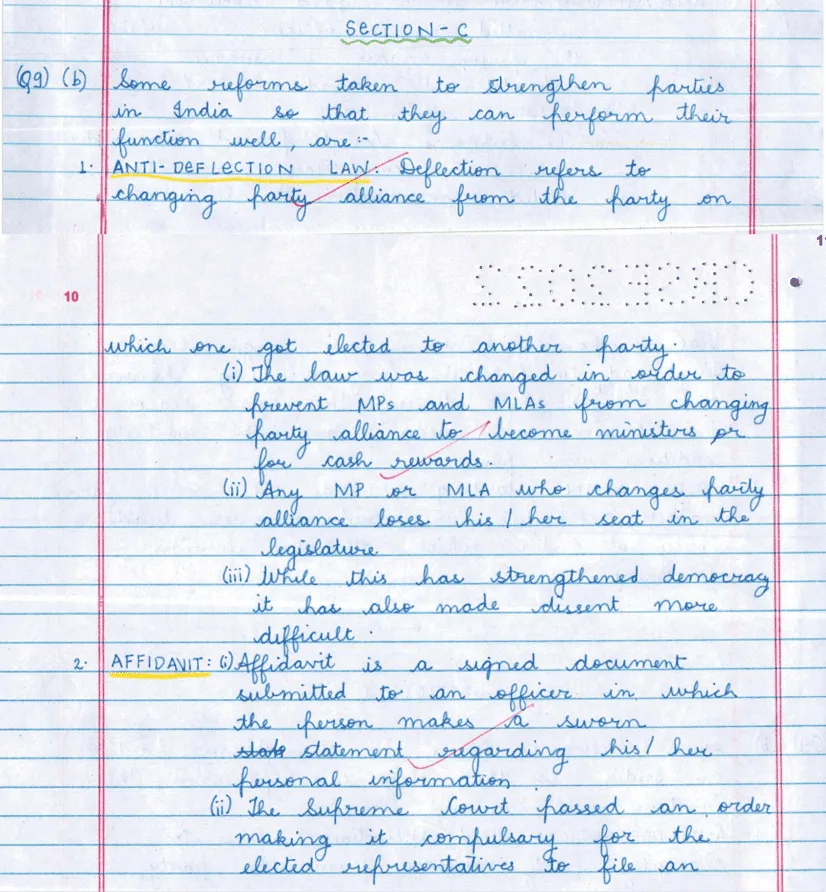 SECTION-C
(Q9) (b) Some reforms taken to strengthen parties
in India so that they can perform their
function well, are :-
1. ANTI-DEFLECTION LAW: Deflection refers to
changing party alliance from the party on
11
10
CBSE2022
which one got elected to another party.
(i) The law was changed in order to
prevent MPs and MLAs from changing
party alliance to become ministers or
for cash rewards.
(ii) Any MP or MLA who changes party
alliance loses his / her seat in the
legislature
(iii) While this has strengthened democracy
it has also made dissent more
difficult.
2. AFFIDAVIT: (i) Affidavit is a signed document
submitted to an officer in which
the person makes a sworn
statement regarding his / her
personal information
(ii) The Supreme Court passed an order
making it compulsary for the
elected representatives to file an